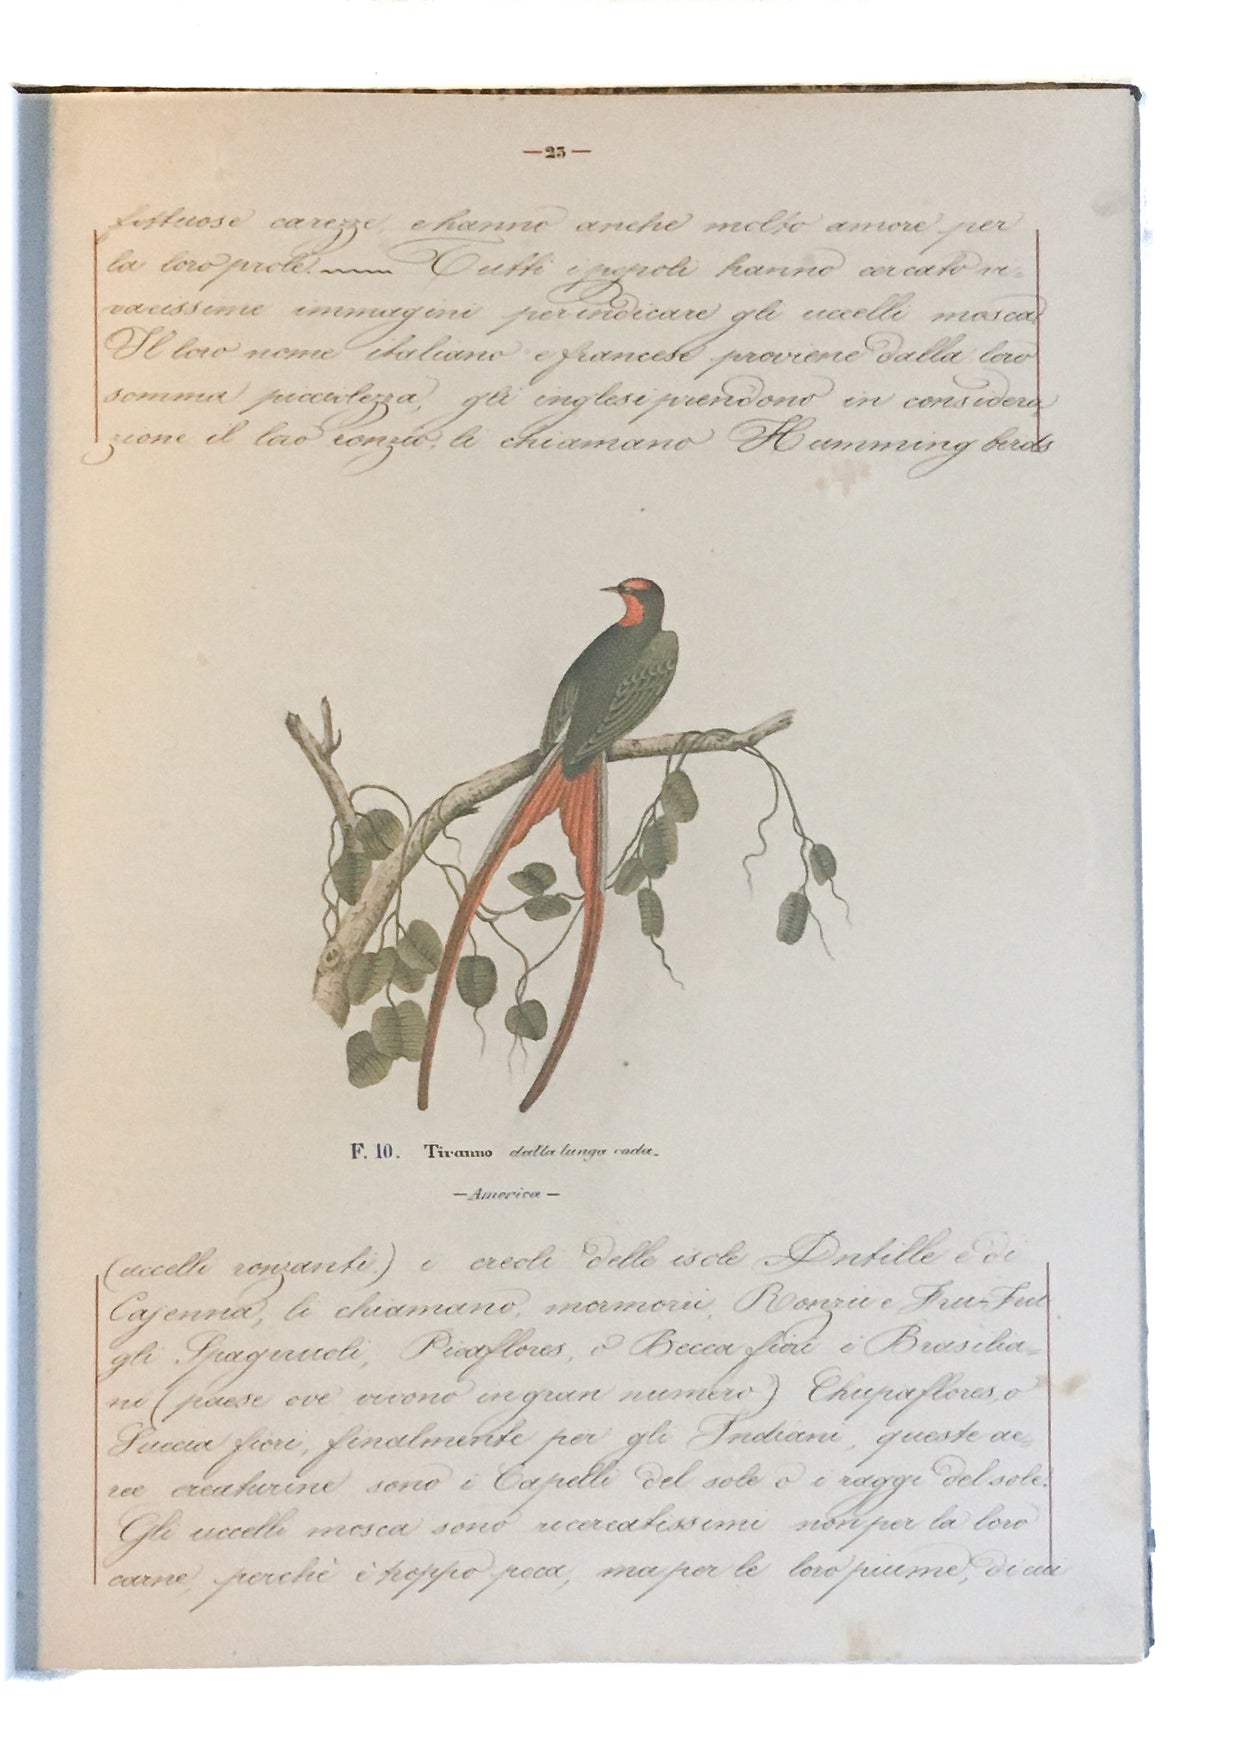 —23—
fettuose carezze, e hanno anche molto amore per
la loro prole. Tutti i popoli hanno cercato vi-
vacissime immagini per indicare gli uccelli mosca.
Il loro nome italiano e francese proviene dalla loro
somma piccolezza, gli inglesi prendono in considera
zione il loro ronzio, li chiamano Humming birds
F. 10. Tiranno dalla lunga coda.
— America —
(uccelli ronzanti.) i creoli delle isole Antille e di
Cajenna, li chiamano, mormorii, Ronzii e Fru-Fru
gli Spagnuoli, Picaflores, o Becca fiori i Brasilia-
ni (paese ove vivono in gran numero) Chupaflores, o
Succia fiori, finalmente per gli Indiani, queste ae-
ree creaturine sono i Capelli del sole o i raggi del sole.
Gli uccelli mosca sono ricercatissimi non per la loro
carne, perchè è troppo poca, ma per le loro piume, di cui